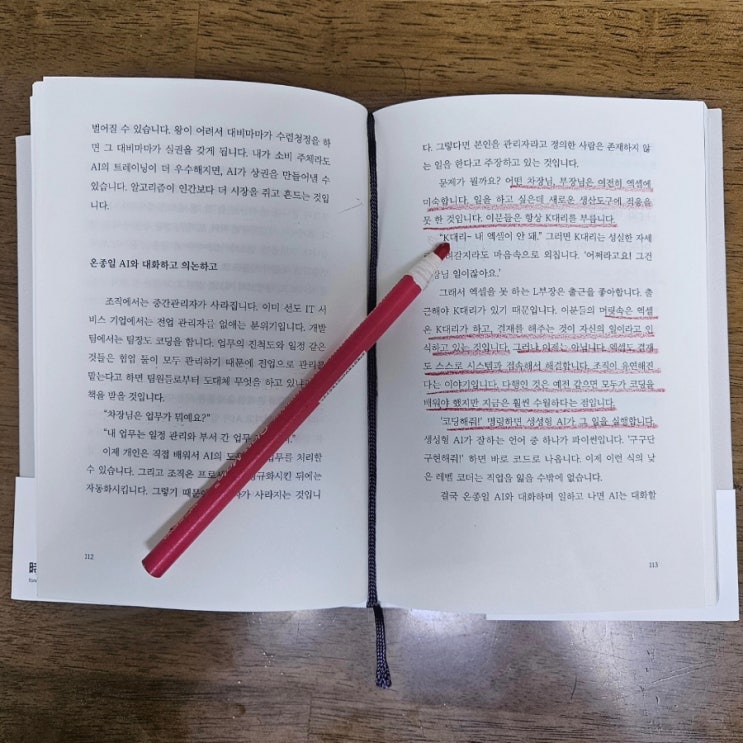 벌어질 수 있습니다. 왕이 어려서 대비마마가 수렴청정을 하
면 그 대비마마가 실권을 갖게 됩니다. 내가 소비 주체라도
AI의 트레이닝이 더 우수해지면, AI가 상권을 만들어낼 수
있습니다. 알고리즘이 인간보다 더 시장을 쥐고 흔드는 것입니
다.
온종일 AI와 대화하고 의논하고
조직에서는 중간관리자가 사라집니다. 이미 선도 IT 서
비스 기업에서는 전업 관리자를 없애는 분위기입니다. 개발
팀에서는 팀장도 코딩을 합니다. 업무의 진척도와 일정 같은
것들은 협업 툴이 모두 관리하기 때문에 전업으로 관리를
맡는다고 하면 팀원들로부터 도대체 무엇을 하고 있냐
책을 받을 것입니다.
“차장님은 업무가 뭐예요?”
“내 업무는 일정 관리와 부서 간 업무
이제 개인은 직접 배워서 AI의 도 업무를 처리할
수 있습니다. 그리고 조직은 프로 정규화시킨 뒤에는
자동화시킵니다. 그렇기 때문 가 사라지는 것입니
112
다. 그렇다면 본인을 관리자라고 정의한 사람은 존재하지 않
는 일을 한다고 주장하고 있는 것입니다.
문제가 뭘까요? 어떤 차장님, 부장님은 여전히 엑셀에
미숙합니다. 일을 하고 싶은데 새로운 생산도구에 적응을
못 한 것입니다. 이분들은 항상 K대리를 부릅니다.
“K대리~ 내 엑셀이 안 돼.” 그러면 K대리는 성실한 자세
달려갈지라도 마음속으로 외칩니다. ‘어쩌라고요! 그건
장님 일이잖아요.’
그래서 엑셀을 못 하는 L부장은 출근을 좋아합니다. 출
근해야 K대리가 있기 때문입니다. 이분들의 머릿속은 엑셀
은 K대리가 하고, 결재를 해주는 것이 자신의 일이라고 인
식하고 있는 것입니다. 그러나 이제는 아닙니다. 엑셀도 결재
도 스스로 시스템과 접속해서 해결합니다. 조직이 유연해진
다는 이야기입니다. 다행인 것은 예전 같으면 모두가 코딩을
배워야 했지만 지금은 훨씬 수월하다는 점입니다.
‘코딩해줘!’ 명령하면 생성형 AI가 그 일을 실행합니다.
생성형 AI가 잘하는 언어 중 하나가 파이썬입니다. ‘구구단
구현해줘!’ 하면 바로 코드로 나옵니다. 이제 이런 식의 낮
은 레벨 코더는 직업을 잃을 수밖에 없습니다.
결국 온종일 AI와 대화하며 일하고 나면 AI는 대화할
113